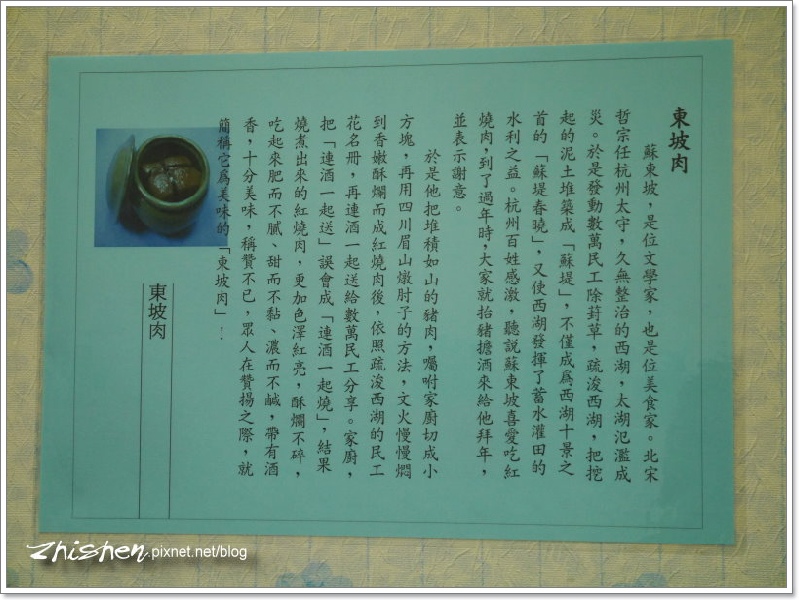 東坡肉
蘇東坡，是位文學家，也是位美食家。北宋
哲宗任杭州太守，久無整治的西湖，太湖氾濫成
災。於是發動數萬民工除葑草，疏浚西湖，把挖
起的泥土堆築成「蘇堤」，不僅成為西湖十景之
首的「蘇堤春曉」，又使西湖發揮了蓄水灌田的
水利之益。杭州百姓感激，聽說蘇東坡喜愛吃紅
燒肉，到了過年時，大家就抬豬擔酒來給他拜年，
並表示謝意。
於是他把堆積如山的豬肉，囑咐家廚切成小
方塊，再用四川眉山燉肘子的方法，文火慢慢燜
到香嫩酥爛而成紅燒肉後，依照疏浚西湖的民工
花名冊，再連酒一起送給數萬民工分享。家廚，
把「連酒一起送」誤會成「連酒一起燒」，結果
燒煮出來的紅燒肉，更加色澤紅亮，酥爛不碎，
吃起來肥而不膩、甜而不黏、濃而不鹹，帶有酒
香，十分美味，稱贊不已，眾人在贊揚之際，就
簡稱它為美味的「東坡肉」…
東坡肉
zhishen.pixnet.net/blog